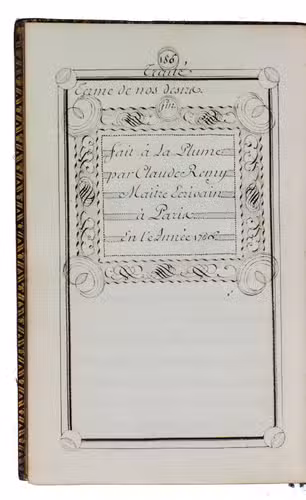 186
Terme de nos desirs.
fin.
fait à la Plume
par Claude Remy
Maître Ecrivain
à Paris
En l'Année